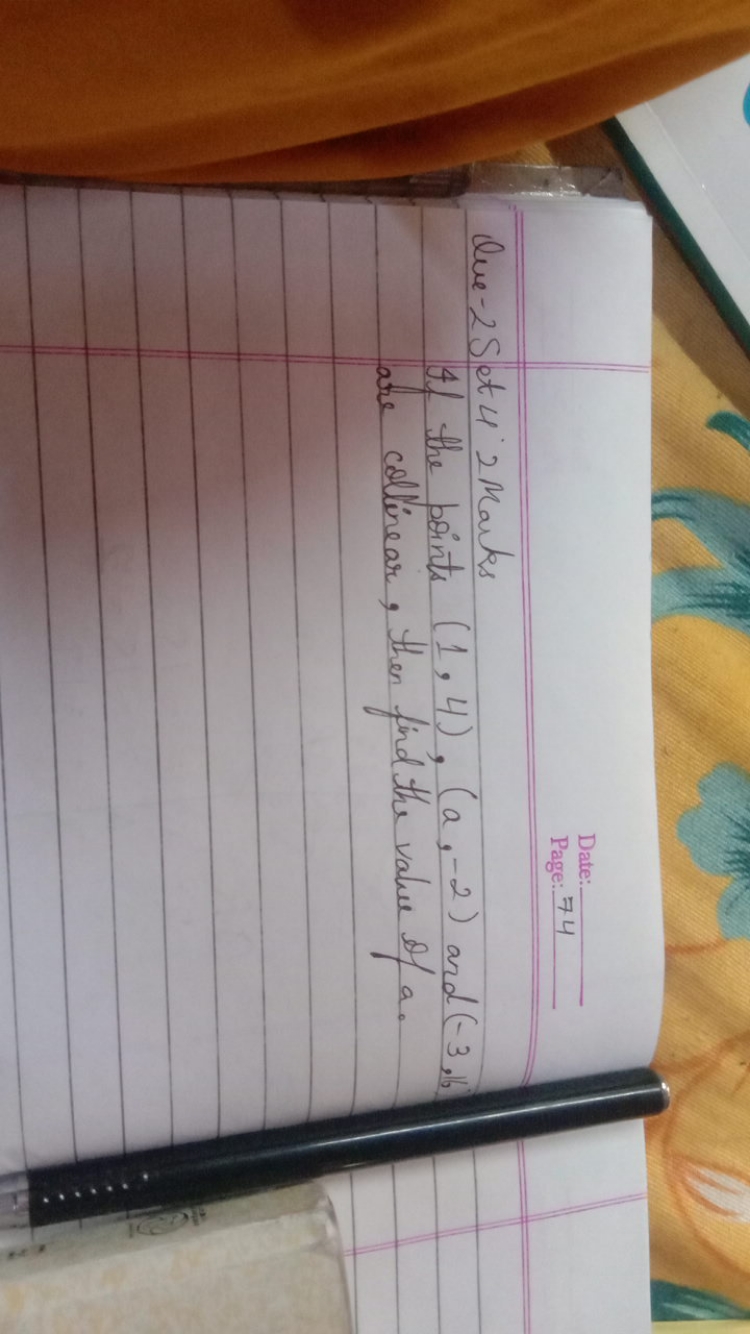 Date:
Page: 74
Que-2 Set 4 2 Marks
If the points (1, 4), (a, -2) and (-3, 16)
are collinear, then find the value of a.